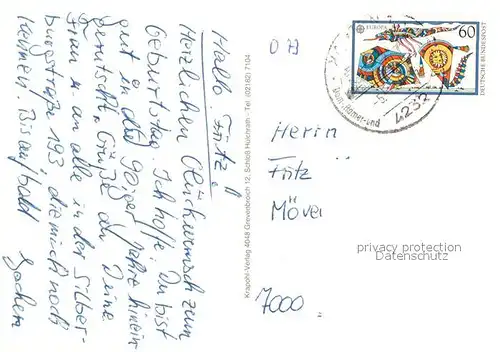 Hallo Fritz!
Herzlichen Glückwunsch zum
Geburtstag. Ich hoffe, Du bist
gut in die 90iger Jahre hinein
gerutscht. Grüße an Deine
Frau u. an alle in der Silber-
burgstraße 193, die mich noch
kennen. Bis auf bald
Jochen
Krapohl-Verlag 4048 Grevenbroich 12, Schloß Hülchrath - Tel. (02182) 7104
EUROPA
60
DEUTSCHE BUNDESPOST
Dom-, Römer- und
4232
Herrn
Fritz
Möve
7000
privacy protection
Datenschutz